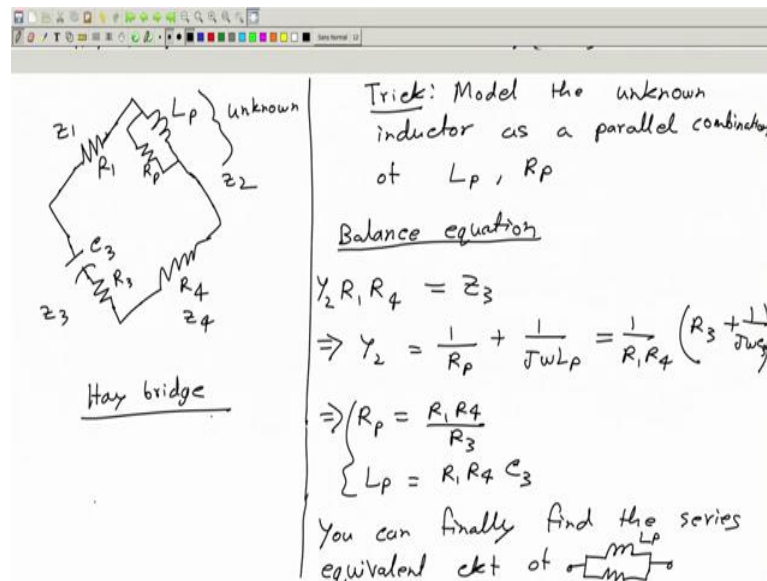 Sans Normal 12
Z1
R1
Lp
Rp
unknown
Z2
C3
R3
Z3
R4
Z4
Hay bridge
Trick: Model the unknown
inductor as a parallel combination
of Lp, Rp
Balance equation
Y2 R1 R4 = Z3
⇒ Y2 = 1/Rp + 1/JwLp = 1/R1R4 (R3 + 1/Jwc3)
⇒ { Rp = R1 R4/R3
Lp = R1 R4 C3
You can finally find the series
Lp
equivalent ckt of